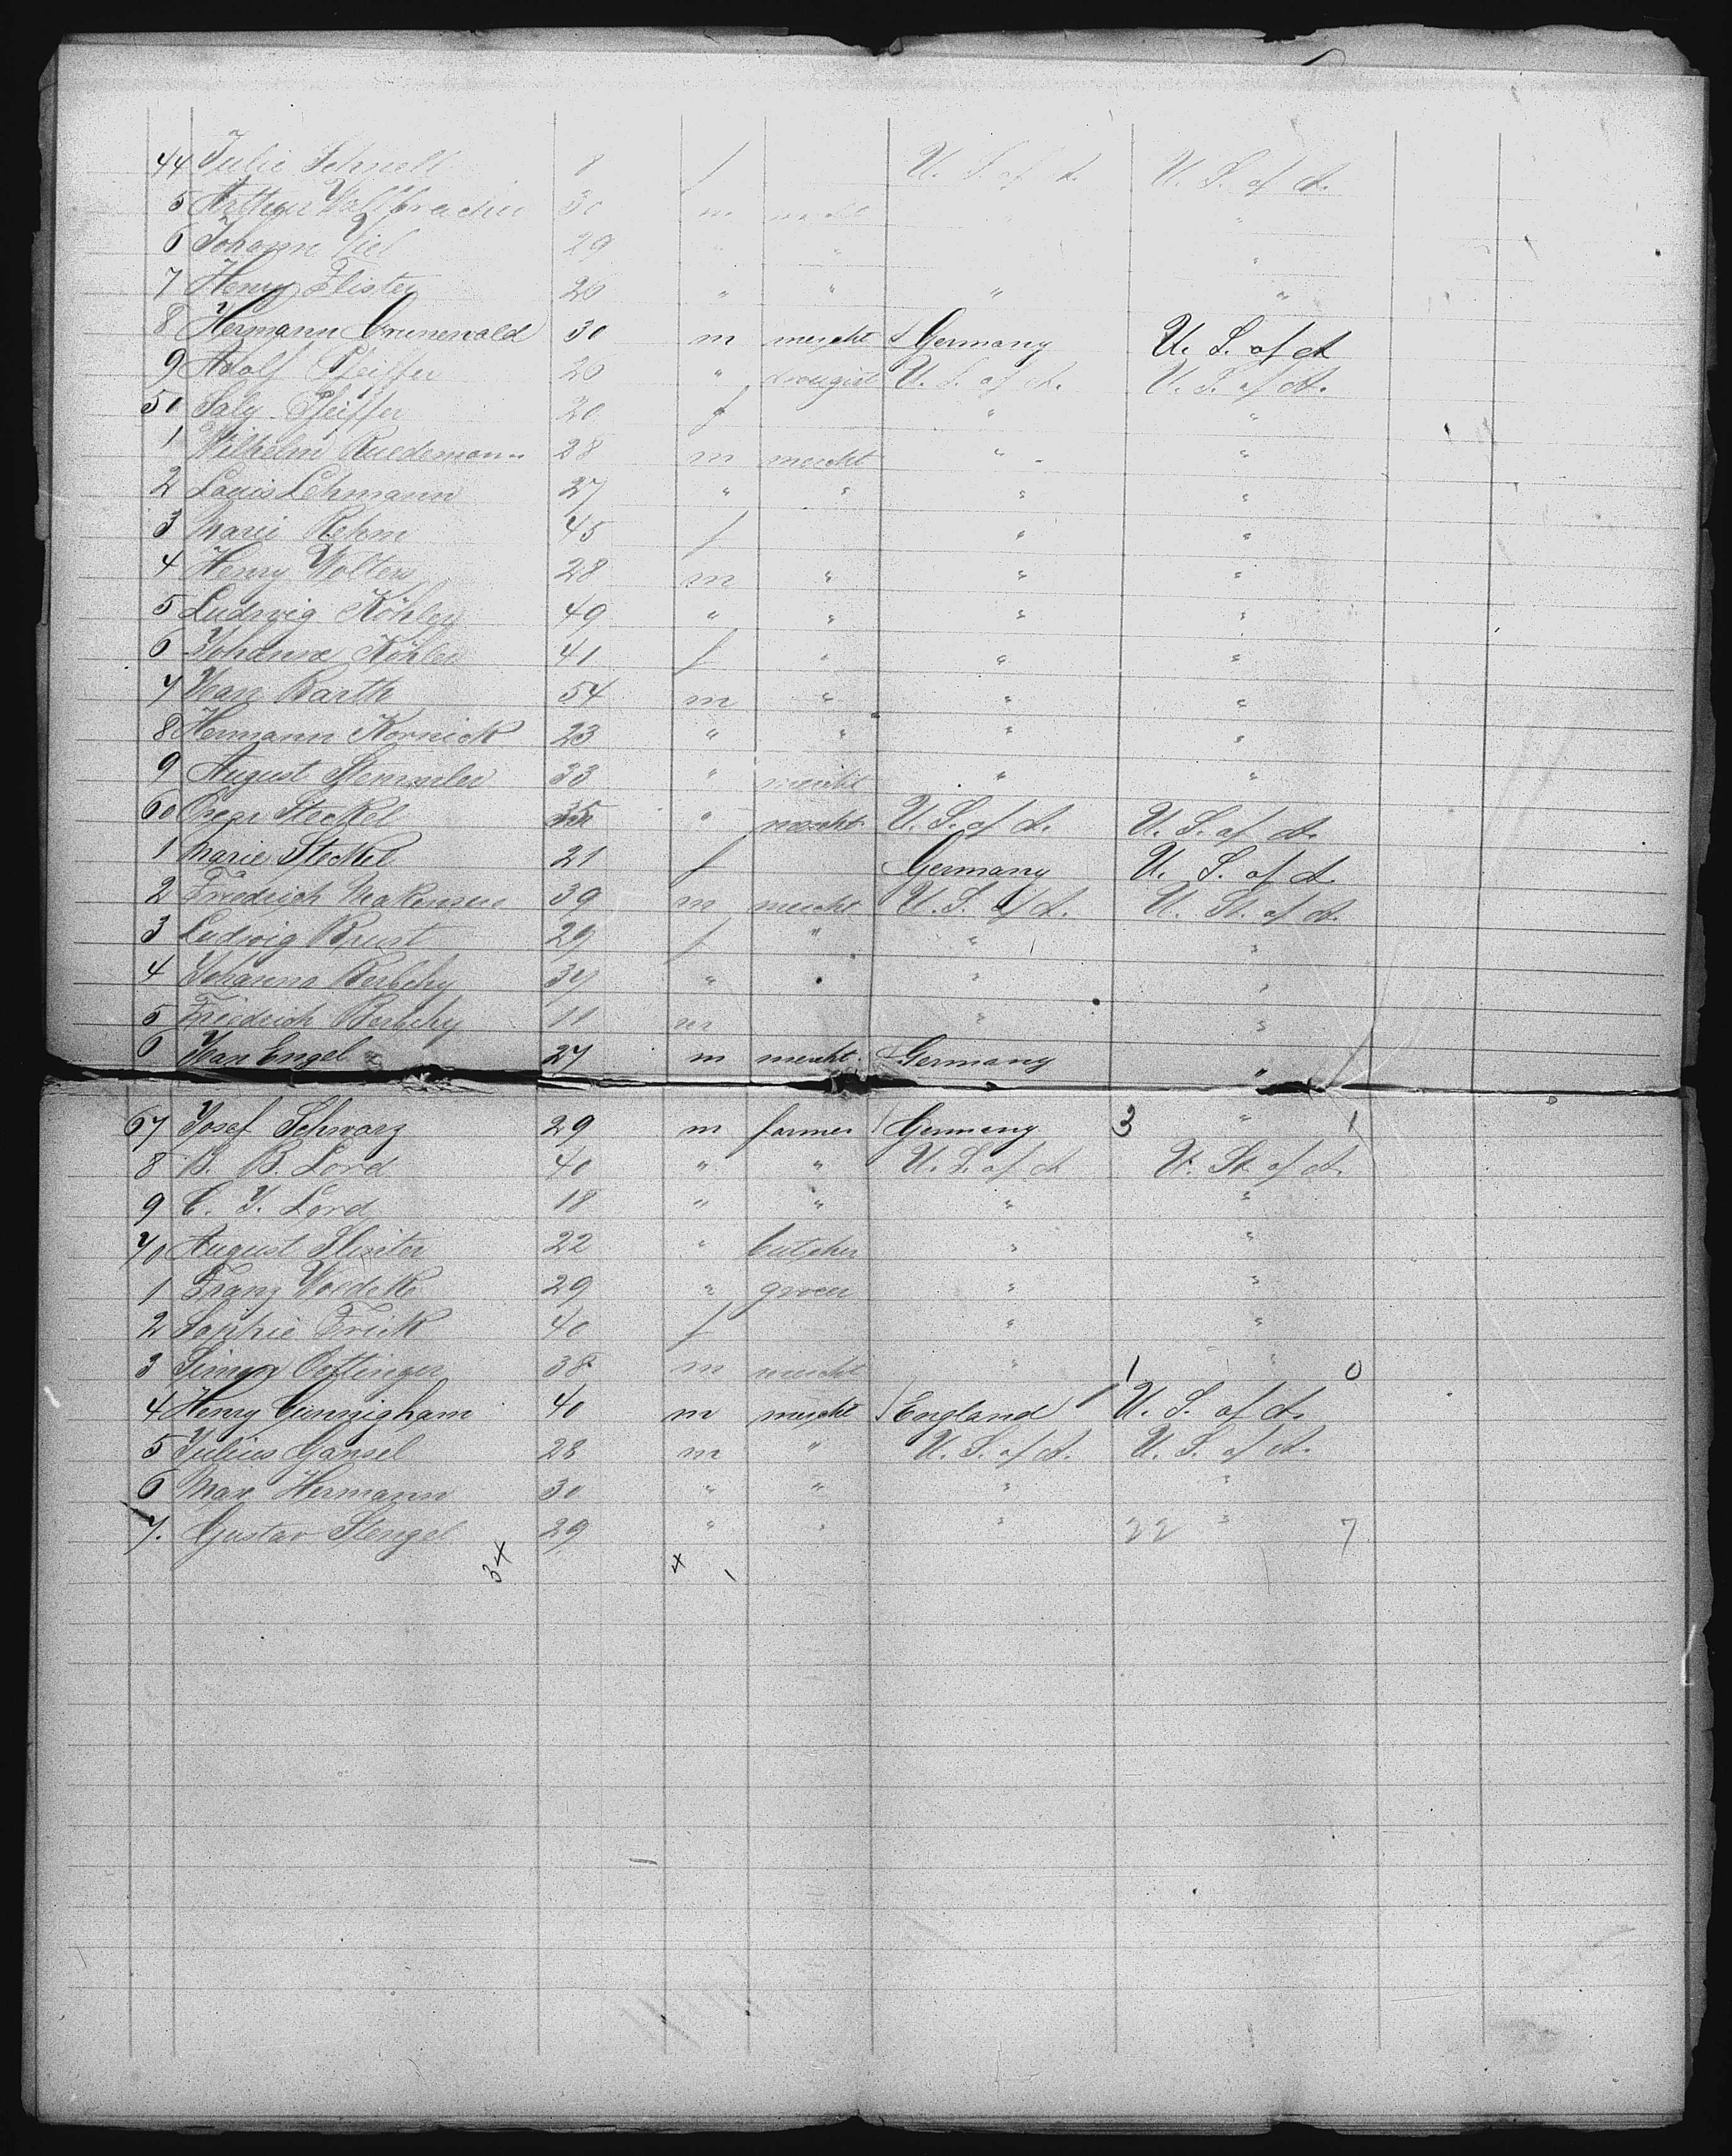 44 Julie Schnell 8 f U. S. of A. U. S. of A.
5 Arthur 30 m mercht " "
6 Johann Viel 29 " "
7 Henry Flister 20 " " " "
8 Hermann Grunewald 30 m mercht Germany U. S. of A
9 Adolf Pfeiffer 20 " drougist U. S. of A. U. S. of A.
50 Saly Pfeiffer 20 f " "
1 Wilhelm Ruedemann 28 m mercht " "
2 Louis Lehmann 27 " " " "
3 Marie Rehm 45 f " "
4 Henry Wolters 28 m " " "
5 Ludwig Köhler 49 " " " "
6 Johanne Köhler 41 f " " "
7 Jean Barth 54 m " " "
8 Hermann Kornick 23 " " " "
9 August Stemmler 33 " mercht " "
60 Oscar Steckel 35 " mercht U. S. of A. U. S. of A.
1 Marie Steckel 21 f Germany U. S. of A
2 Friedrich Makensen 39 m mercht U. S. of A. U. St. of A.
3 Ludwig Brust 29 f " " "
4 Johanna Berbchy 34 " " " "
5 Friedrich Berbchy 11 m " "
6 Jean Engel 27 m mercht. Germany "
67 Josef Schwarz 29 m farmer Germany 3 " 1
8 B. B. Lord 40 " " U. S. of A U. St. of A.
9 C. J. Lord 18 " " " "
70 August 22 " butcher " "
1 Franz Woedtke 29 " grocer " "
2 Sophie Frick 40 f " "
3 Simon Oettinger 38 m mercht " 1 " 0
4 Henry Cunnigham 40 m mercht England U. S. of A.
5 Julius Gansel 28 m " U. S. of A. U. S. of A.
6 Max Hermann 30 " " " "
7. Gustav Stengel 29 " " " 22 " 7
34 4 1